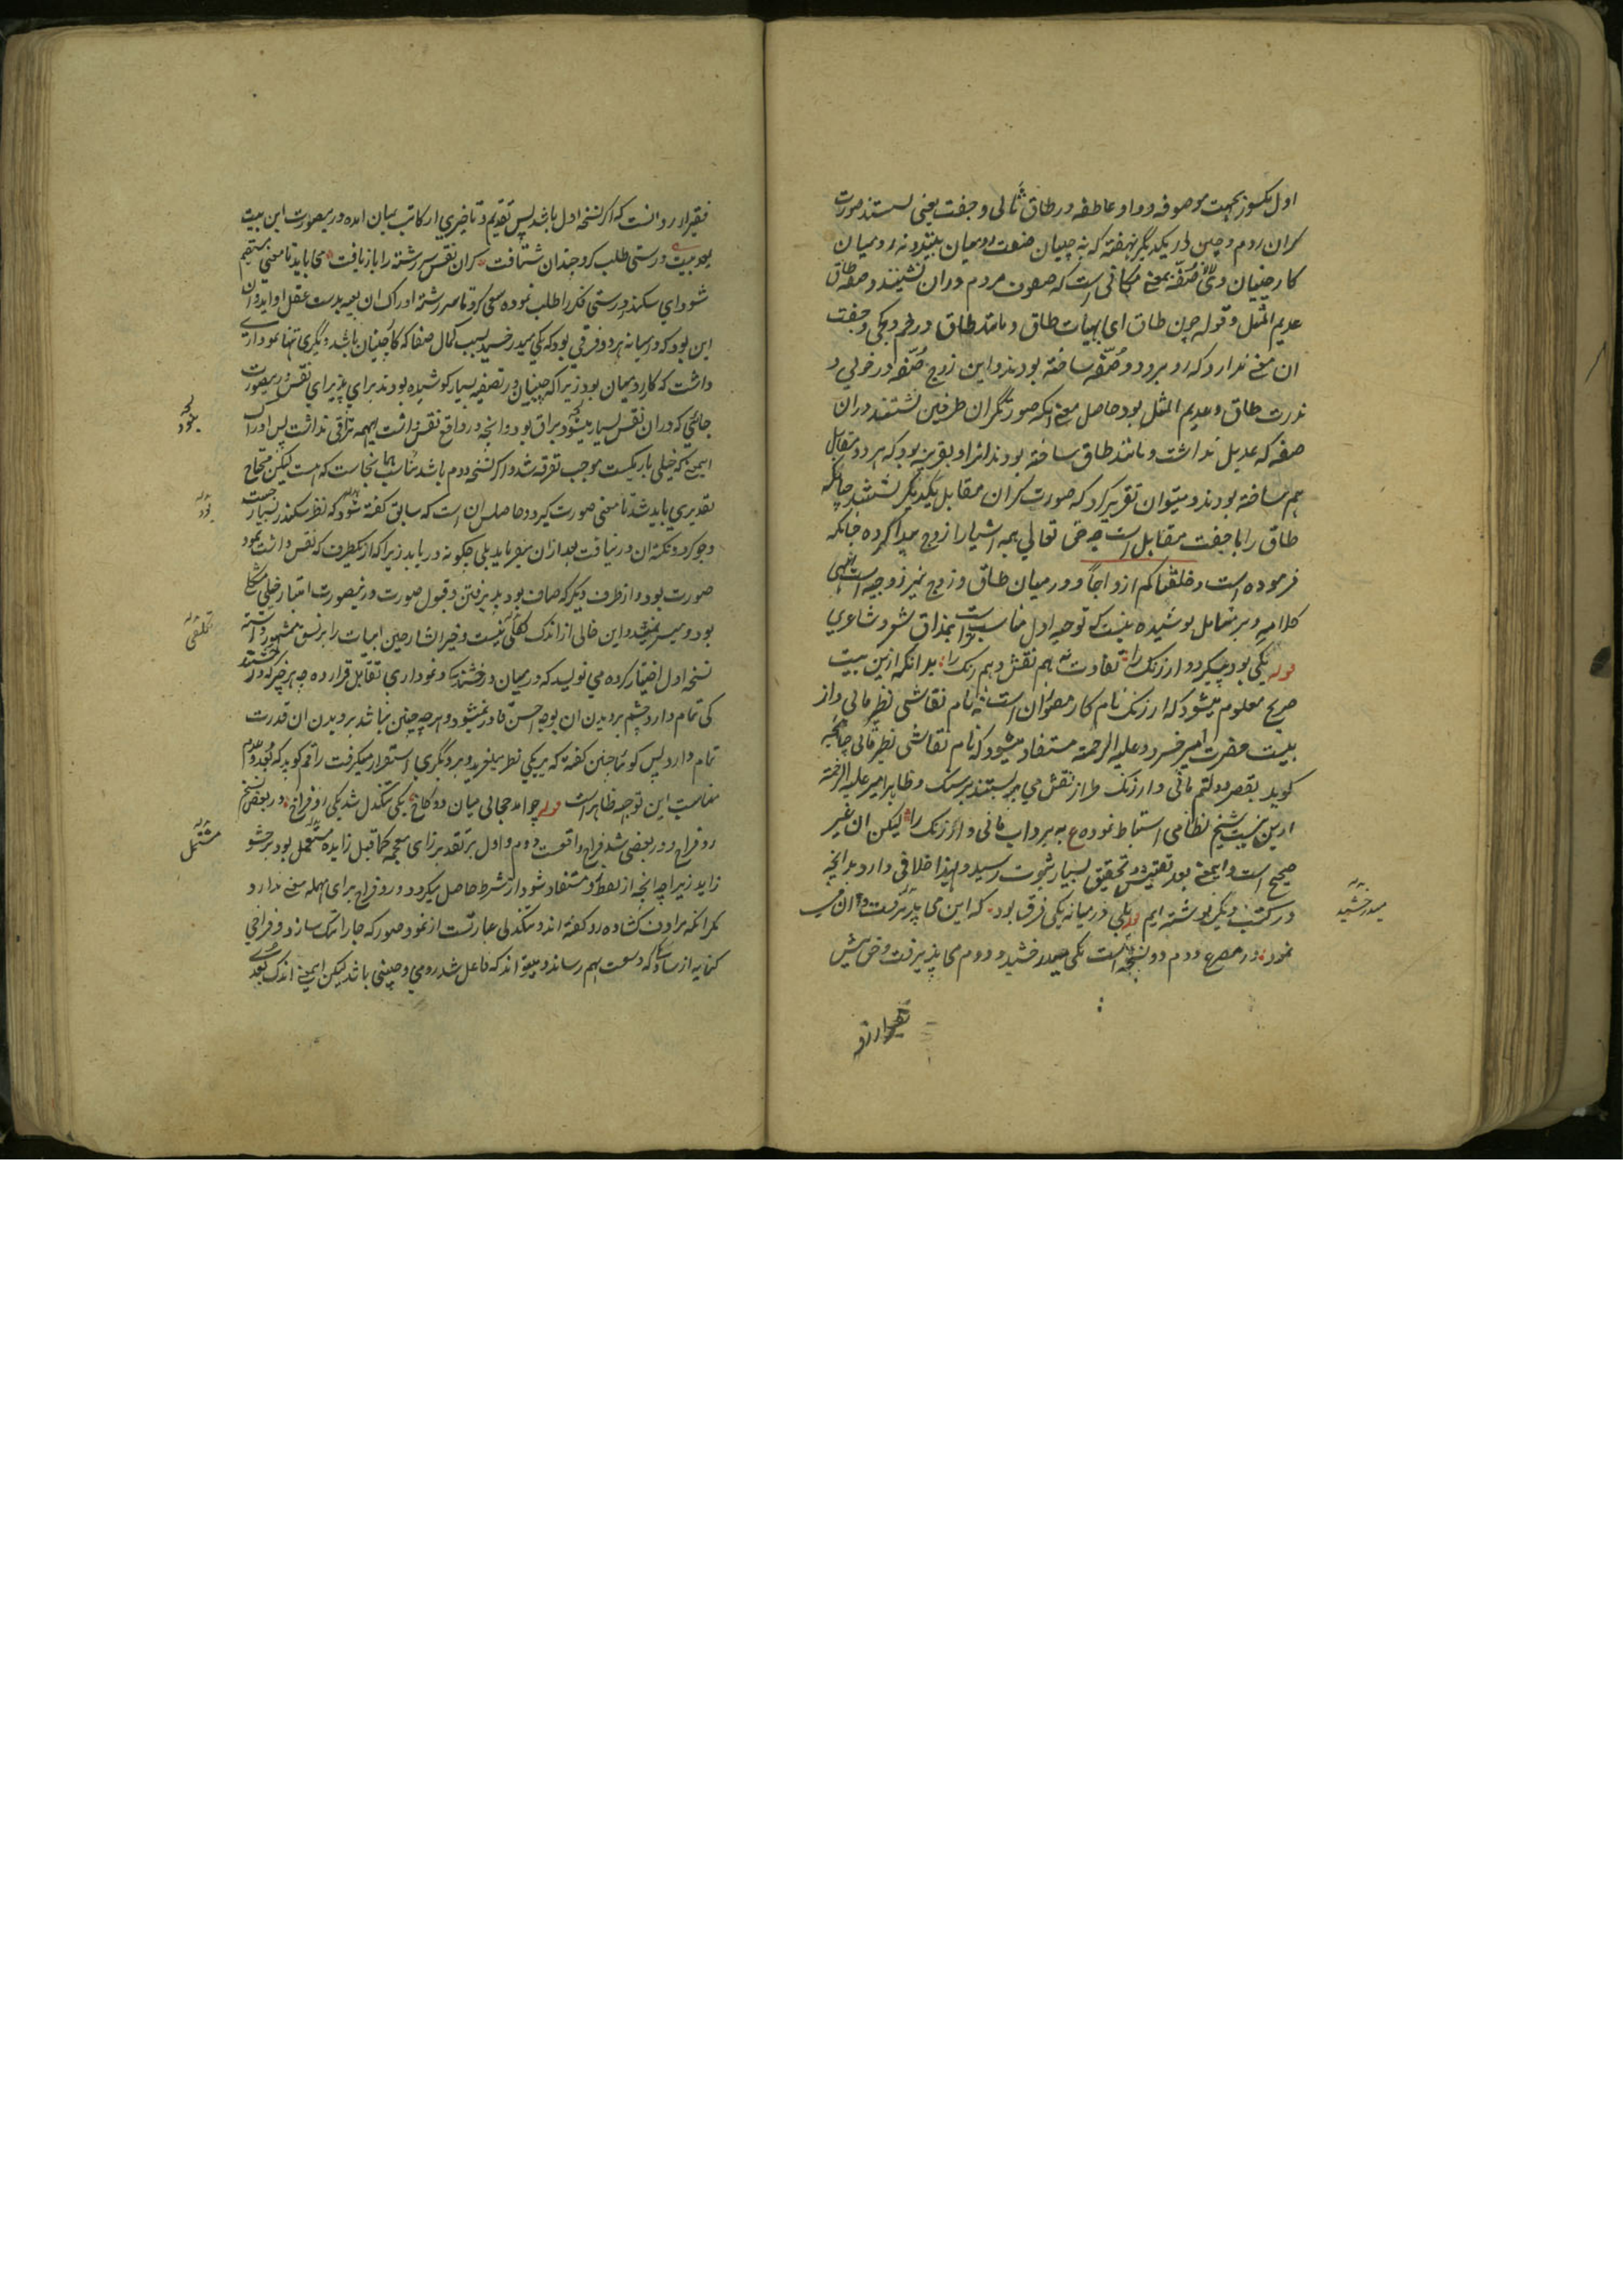 اول مکسور بجهت موصوفه و واو عاطفه در طاق ثانی و جفت یعنی نشستند صورت
کران روم و چین از یکدیگر نهفته که نه چینیان صنعت رومیان بینند و نه رومیان
کار چینیان و صُفّه بمعنی مکانی است که صفوف مردم در ان نشینند و صفه طاق
عدیم المثل و قوله چون طاق ای بهیأت طاق و مانند طاق در خم و کجی و جفت
ان معنی ندارد که روبرو دو صُفّه ساخته بودند و این زوج صُفّه در خوبی و
ندرت طاق و عدیم المثل بود حاصل معنی انکه صورتگران طرفین نشستند در ان
صفه که عدیل نداشت و مانند طاق ساخته بودند انرا و بقرینه بود که هر دو مقابل
هم ساخته بودند و میتوان تقریر کرد که صورت کران مقابل یکدیگر نشستند چنانکه
طاق را با جفت مقابل است چه حق تعالی همه اشیا را زوج پیدا کرده چنانکه
فرموده است و خلقناکم ازواجاً و در میان طاق و زوج نیز زوجیه است انتهی
کلامه و بر متامل پوشیده نیست که توجیه اول مناسبت بمذاق شعر و شاعری
قوله یکی بود پیکر دو ارژنک را تفاوت نه هم نقش و هم رنک را بدانکه ازین بیت
صریح معلوم میشود که ارژنک نام کار مصوران است نه نام نقاشی نظیر مانی و از
بیت حضرت امیر خسرو علیه الرحمة مستفاد میشود که نام نقاشی نظیر مانی چنانچه
کوید بقصر دولتم مانی و ارژنک طراز نقش می بستند بر سنک و ظاهرا امیر علیه الرحمة
ازین بیت شیخ نظامی استنباط نموده ع به برد اب مانی و ارژنک را لیکن ان غیر
صحیح است و اینمعنی بعد تفتیش و تحقیق بسیار بثبوت رسید و لهذا اختلافی دارد چنانچه
در کتب دیگر نوشته ایم قوله بلی در میانه یکی فرق بود که این می پذیرفت و ان می
نمود در مصرع دوم دو نسخه است یکی میدرخشید و دوم می پذیرفت و خویش
میدرخشید
فقیر ارزو
فقیر ارزو دانست که اکر نسخه اول باشد پس تقدیم و تاخیری از کاتب بمیان امده درینصورت این بیت
بود بیت درستی طلب کرد چندان شتافت کزان نقش سررشته را بازیافت می باید تا معنی مستقیم
شود ای سکندر درستی فکر را طلب نموده سعی کرد تا سررشته ادراک ان بعینه بدست عقل او اید و ان
این بود که در میانه هر دو فرقی بود که یکی میدرخشید بسبب کمال صفا که کار چینیان باشد و دیگری تنها نموداری
داشت که کار رومیان بود زیرا که چینیان در تصفیه بسیار کوشیده بودند برای پذیرای نقش درینصورت
جائی که در ان نقش بسیار مینمود براق بود و انچه در واقع نقش داشت اینهمه براقی نداشت پس ادراک
اینمعنی که خیلی باریکست موجب تفرقه شد و اکر نسخه دوم باشد مناسب همانجاست که هست لیکن محتاج
تقدیری باید شد تا معنی صورت کیرد و حاصلش ان است که سابق کفته شود که نظر سکندر بسیار جست
وجو کرد و نکته ان در نیافت بعد ازان میفرماید بلی چکونه دریابد زیرا که از یکطرف که نقش داشت نمود
صورت بود و از طرف دیکر که صاف بود پذیرفتن و قبول صورت و درینصورت امتیاز خیلی مشکل
بود و میسر نمیشد و این خالی از اندک تکلفی نیست و خیر الشارحین ابیات را بر نسق مشهور داشته
نسخه اول اختیار کرده می نویسد که در میان درخشندکی و نموداری تقابل قرار داده چه هر چیز که درخشند
کی تمام دارد چشم بر دیدن ان بوجه احسن قادر نمیشود و هر چه چنین نباشد بر دیدن ان قدرت
تمام دارد پس کویا چنین کفته که بر یکی نظر میلغزید و بر دیگری استقرار میکرفت راقم کوید که بُعد و عدم
مناسبت این توجیه ظاهر است قوله چو امد حجابی میان دو کاخ یکی تنکدل شد یکی رو فراخ و در بعض نسخ
رو فراخ و در بعضی شد فراخ واقعست دوم و اول بر تقدیر زای معجمه کما قیل زایده مشتمل بود بر حشو
زاید زیرا چه انچه از لفظ زو مستفاد شود از شرط حاصل میکردد و رو فراخ برای مهمله معنی ندارد
مکر انکه مرادف کشاده رو کفته اند و تنکدلی عبارتست از نمود صور که جا را تنک سازد و فراخی
کنایه از سادکی که وسعت بهم رساند و میتواند که فاعل شد رومی و چینی باشد لیکن اینمعنی اندک بُعدی
بنمود
تکلفی
مشتمل